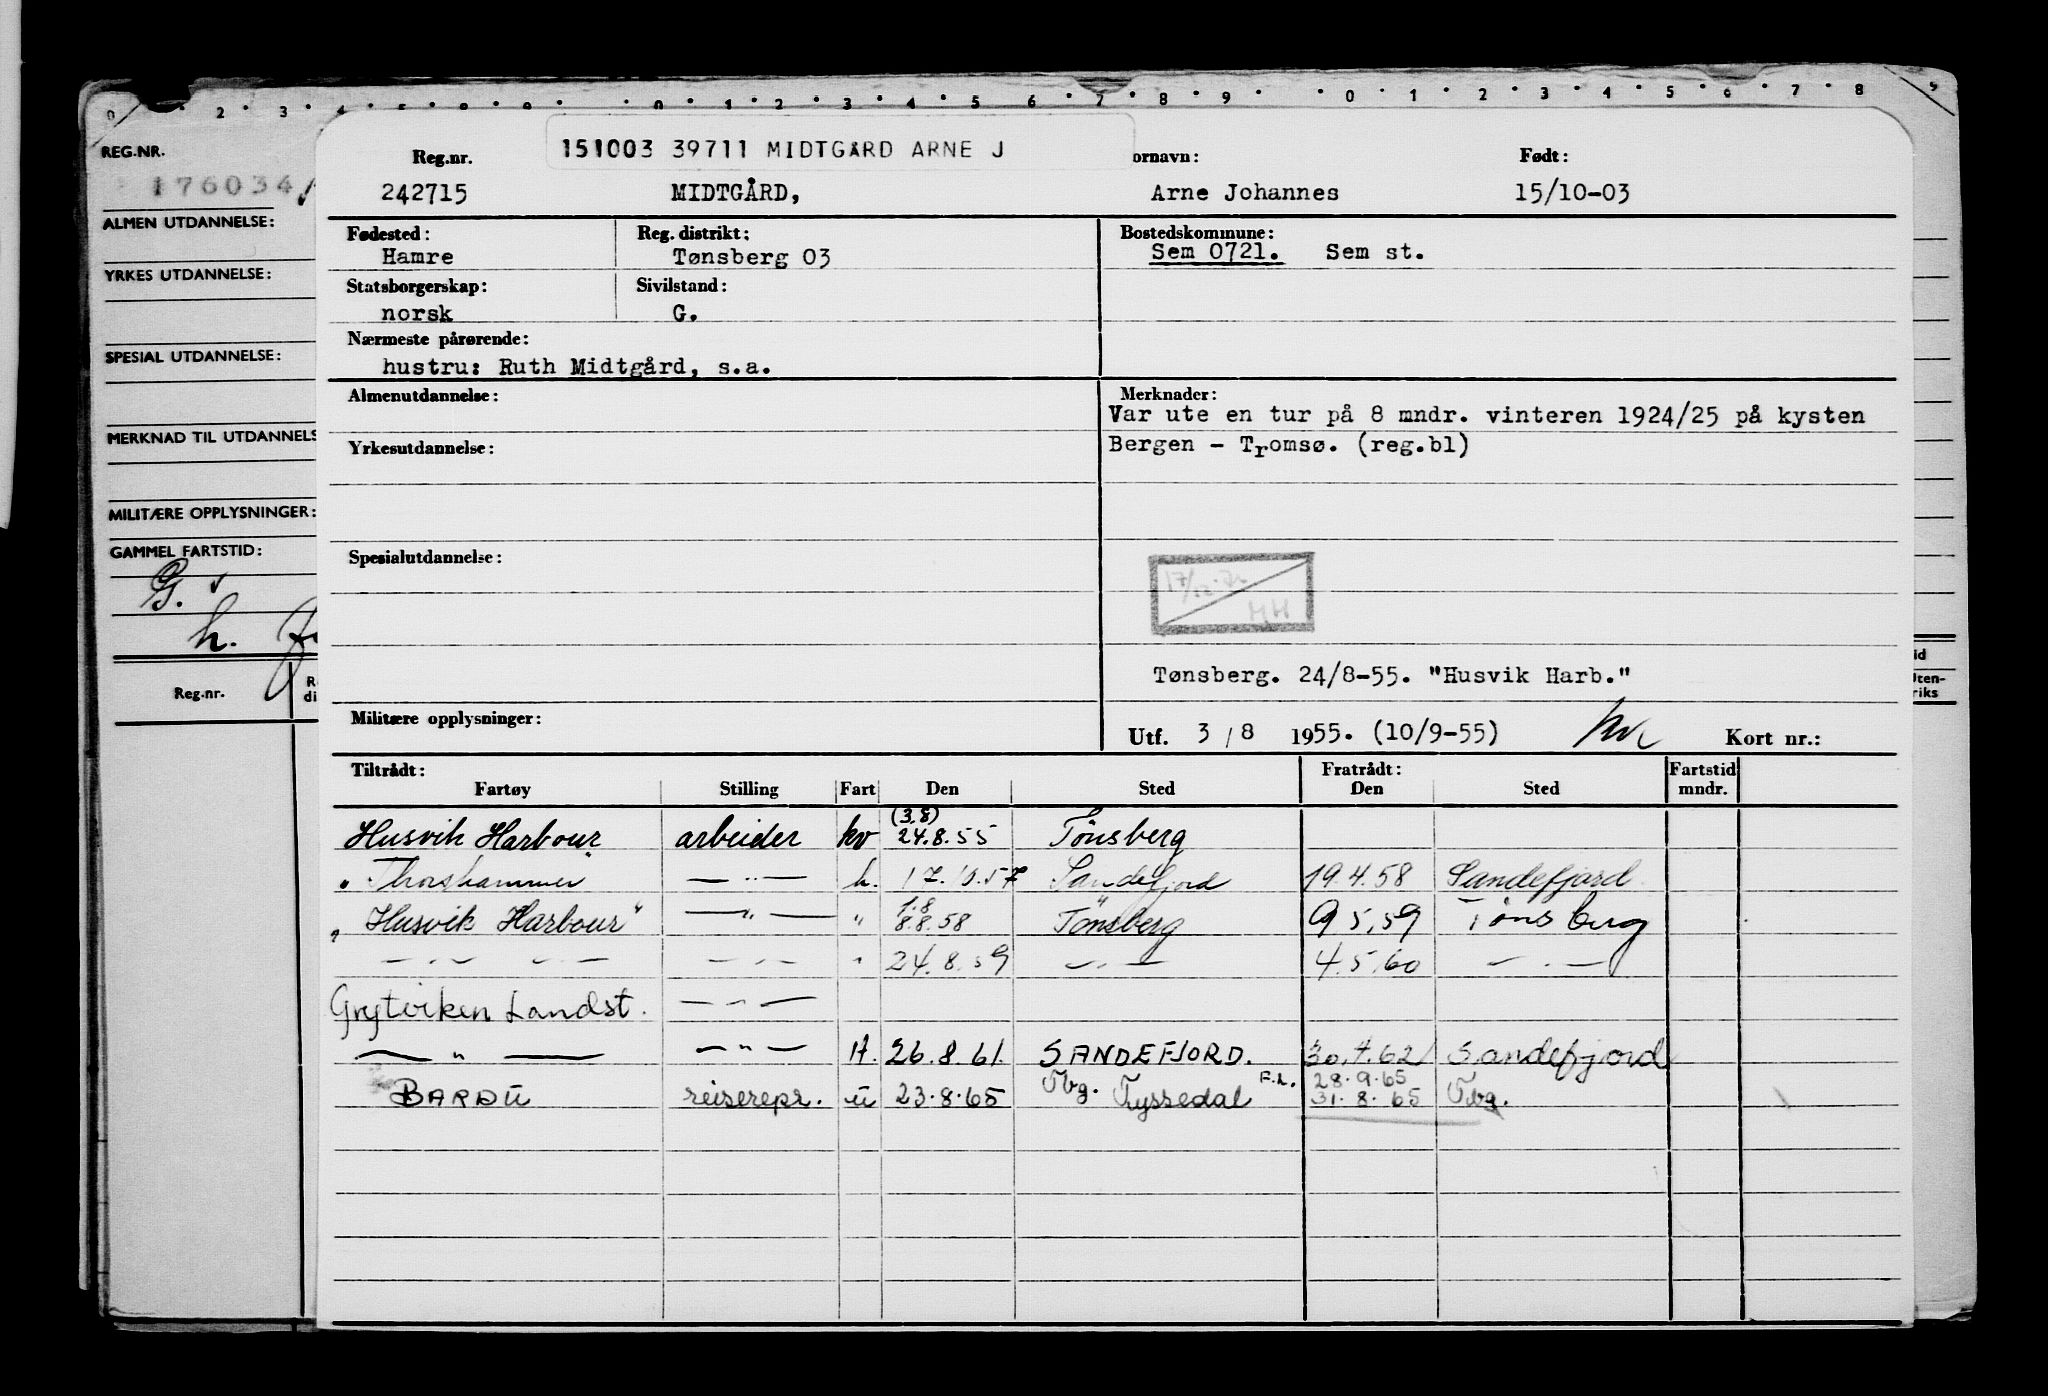 0 2 3 4 5 6 8 9 0 1 2 3 4 5 6 7 8 9 0 1 2 3 4 5 6 7 8 9
REG.NR.
176034
ALMEN UTDANNELSE:
YRKES UTDANNELSE:
SPESIAL UTDANNELSE:
MERKNAD TIL UTDANNELS
MILITÆRE OPPLYSNINGER:
GAMMEL FARTSTID:
G. v
h.
Reg.nr.
R
di
151003 39711 MIDTGARD ARNE J
Reg.nr. ornavn: Født:
242715 MIDTGÅRD, Arne Johannes 15/10-03
Fødested: Reg. distrikt: Bostedskommune:
Hamre Tønsberg 03 Sem 0721. Sem st.
Statsborgerskap: Sivilstand:
norsk G.
Nærmeste pårørende:
hustru: Ruth Midtgård, s.a.
Almenutdannelse: Merknader:
Var ute en tur på 8 mndr. vinteren 1924/25 på kysten
Bergen - Tromsø. (reg.bl)
Yrkesutdannelse:
Spesialutdannelse:
HH
Tønsberg. 24/8-55. "Husvik Harb."
Militære opplysninger:
Utf. 3/8 1955. (10/9-55) Kort nr.:
Tiltrådt: Fratrådt: Fartstid
Fartøy Stilling Fart Den Sted Den Sted mndr.
(3.8)
Husvik Harbour arbeider kv 24.8.55 Tönsberg
" Thorshammer" — " — h. 17.10.57 Sandefjord 19.4.58 Sandefjord
1.8
" Husvik Harbour" — " — " 8.8.58 Tönsberg 9 5.59 Tönsberg
— " — — " — — " — " 24.8.59 — " — 4.5.60 — " —
Grytviken Landst. — " —
— " — — " — H. 26.8.61. SANDEFJORD. 30.4.62 Sandefjord
28.9.65
BARDU reiserepr. u 23.8.65 Tbg. Tyssedal F.L. 31.8.65 Tbg.
id
Uten-
riks